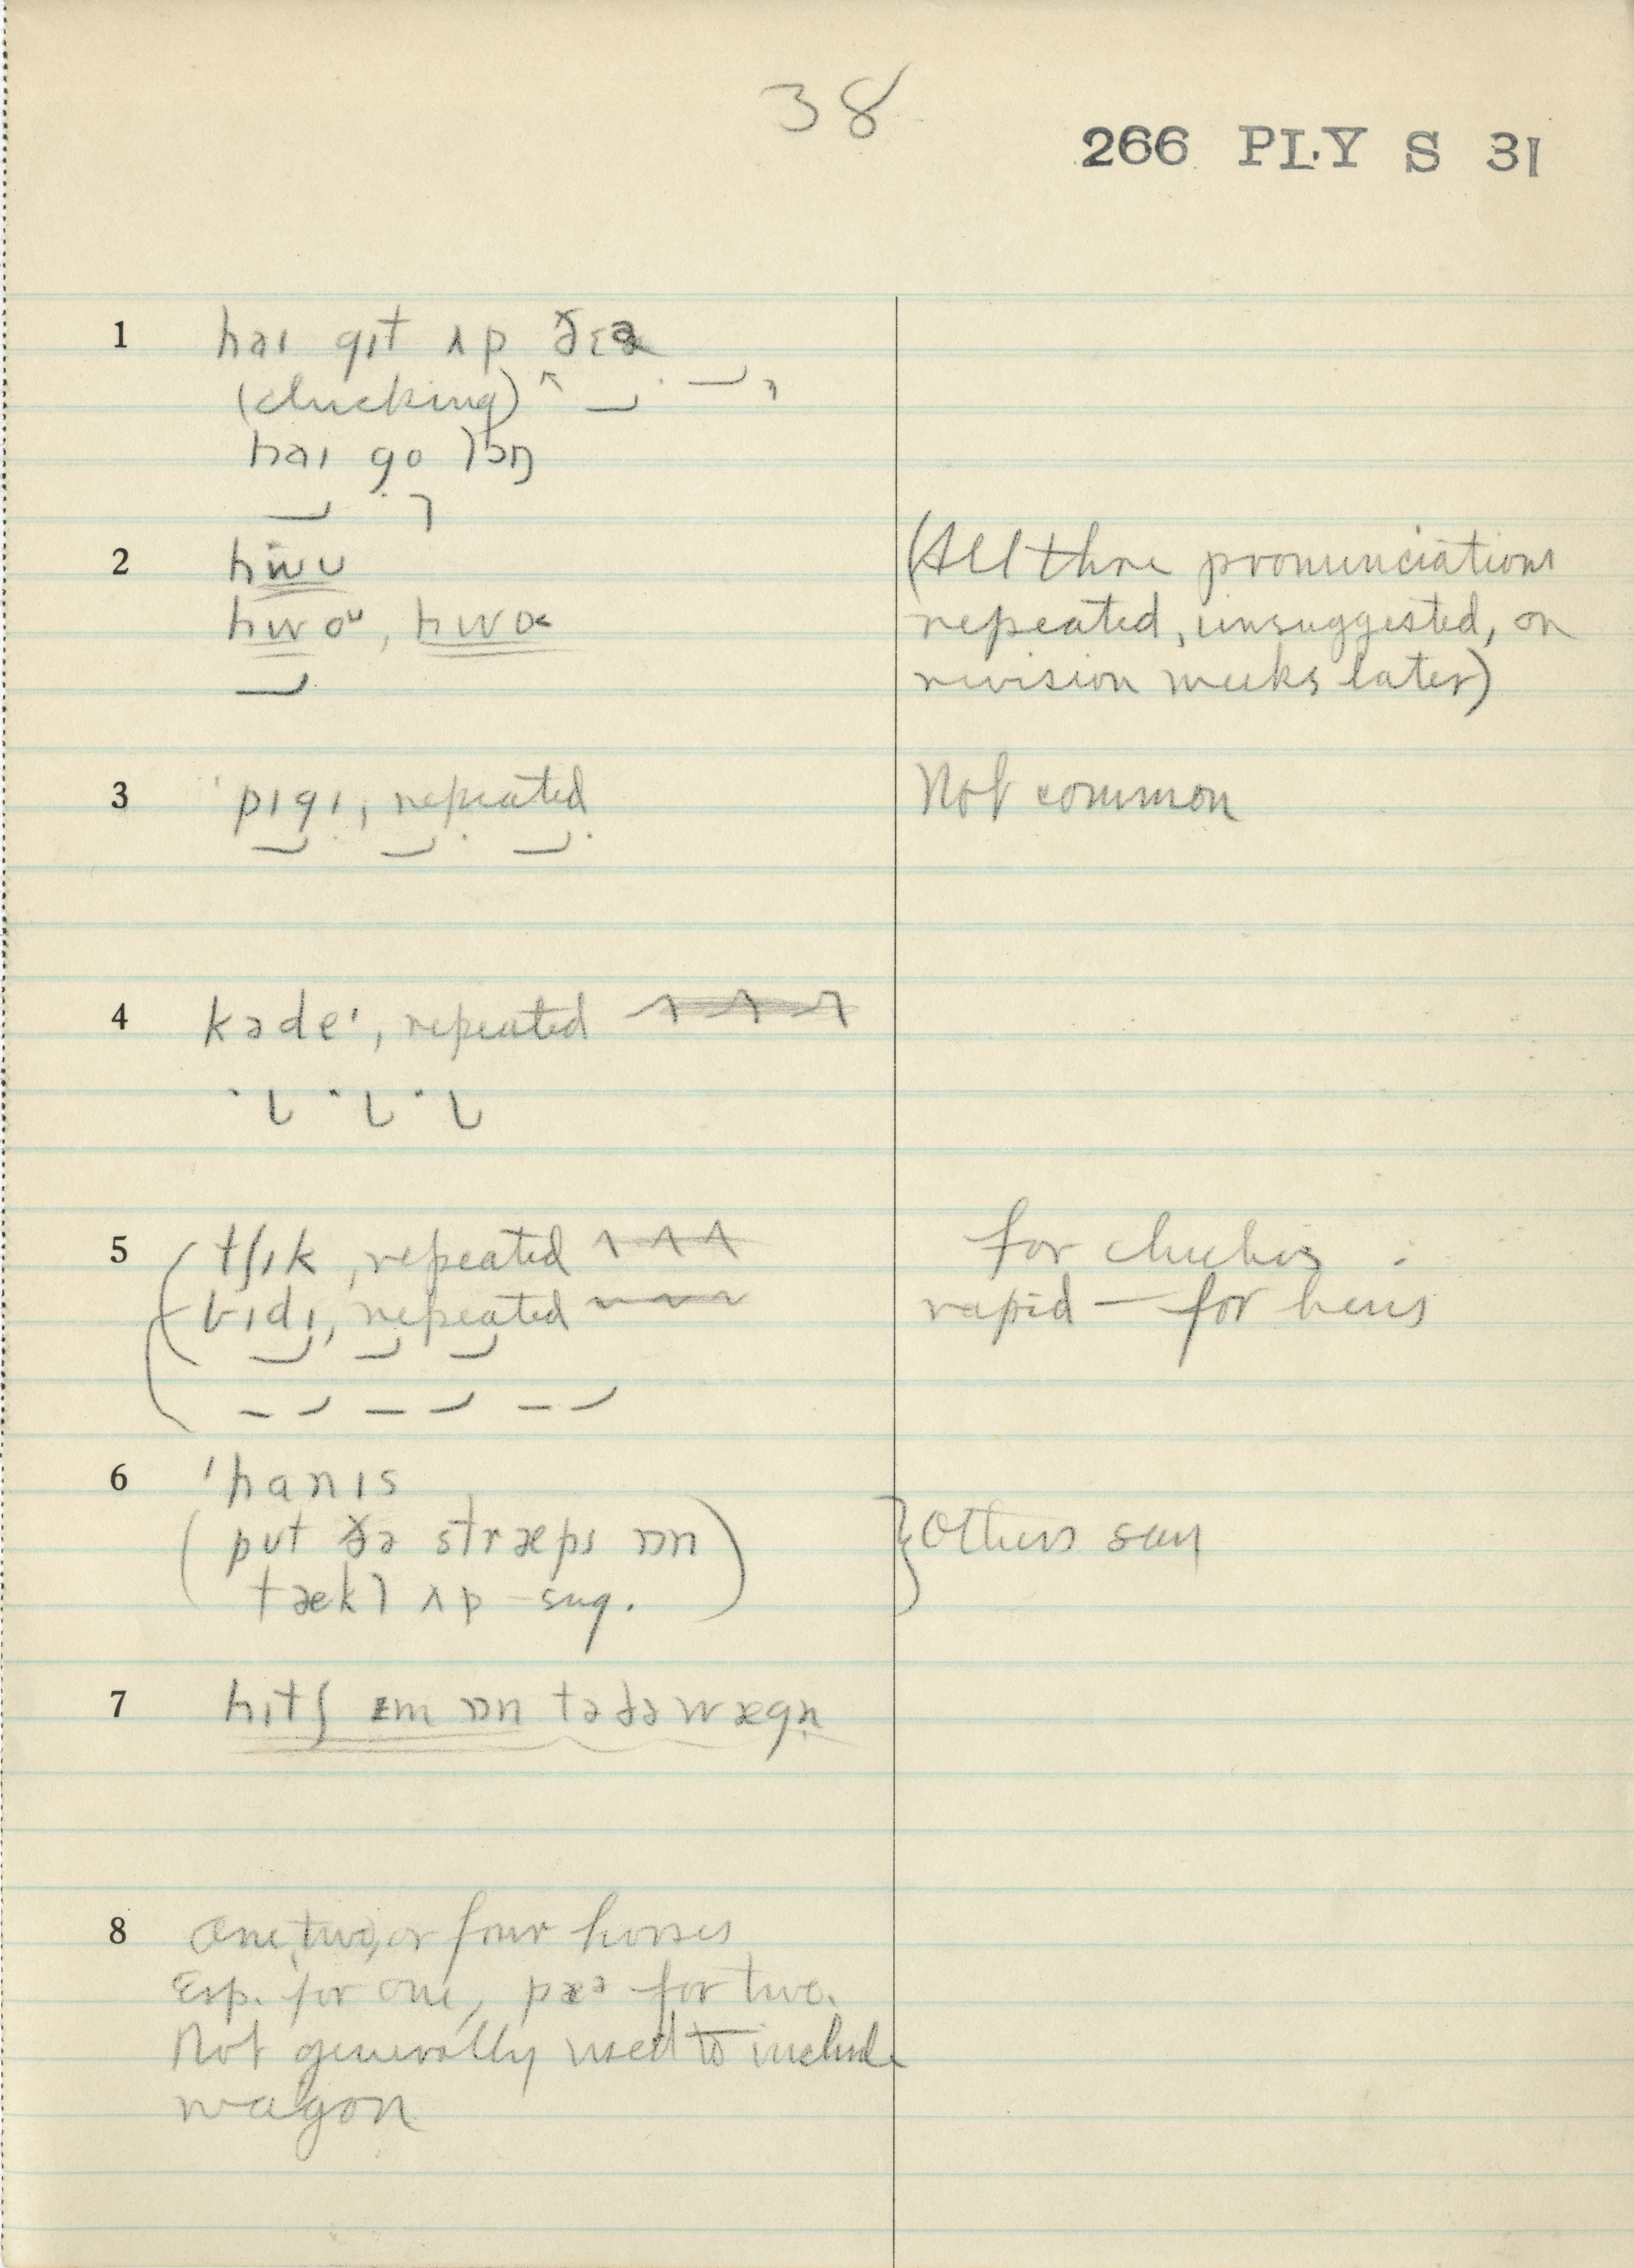 38
266 PLY S 31
1 haɪ gɪt ʌp ðɛə
(clucking)
haɪ go lɔŋ
2 hwʊ
hwoᵘ, hwɑ
(All three pronunciations
repeated, unsuggested, on
revision weeks later)
3 'pɪgɪ, repeated
Not common
4 kədeˈ, repeated
5 tʃɪk, repeated
for chickens
bɪdɪ, repeated
rapid — for hens
6 'hanɪs
(put ðə stræps ɒn
tækl ʌp - sug.)
} Others say
7 hɪtʃ əm ɒn tə ðə wægn̩
8 One, two, or four horses
Esp. for one, pæə for two.
Not generally used to include
wagon